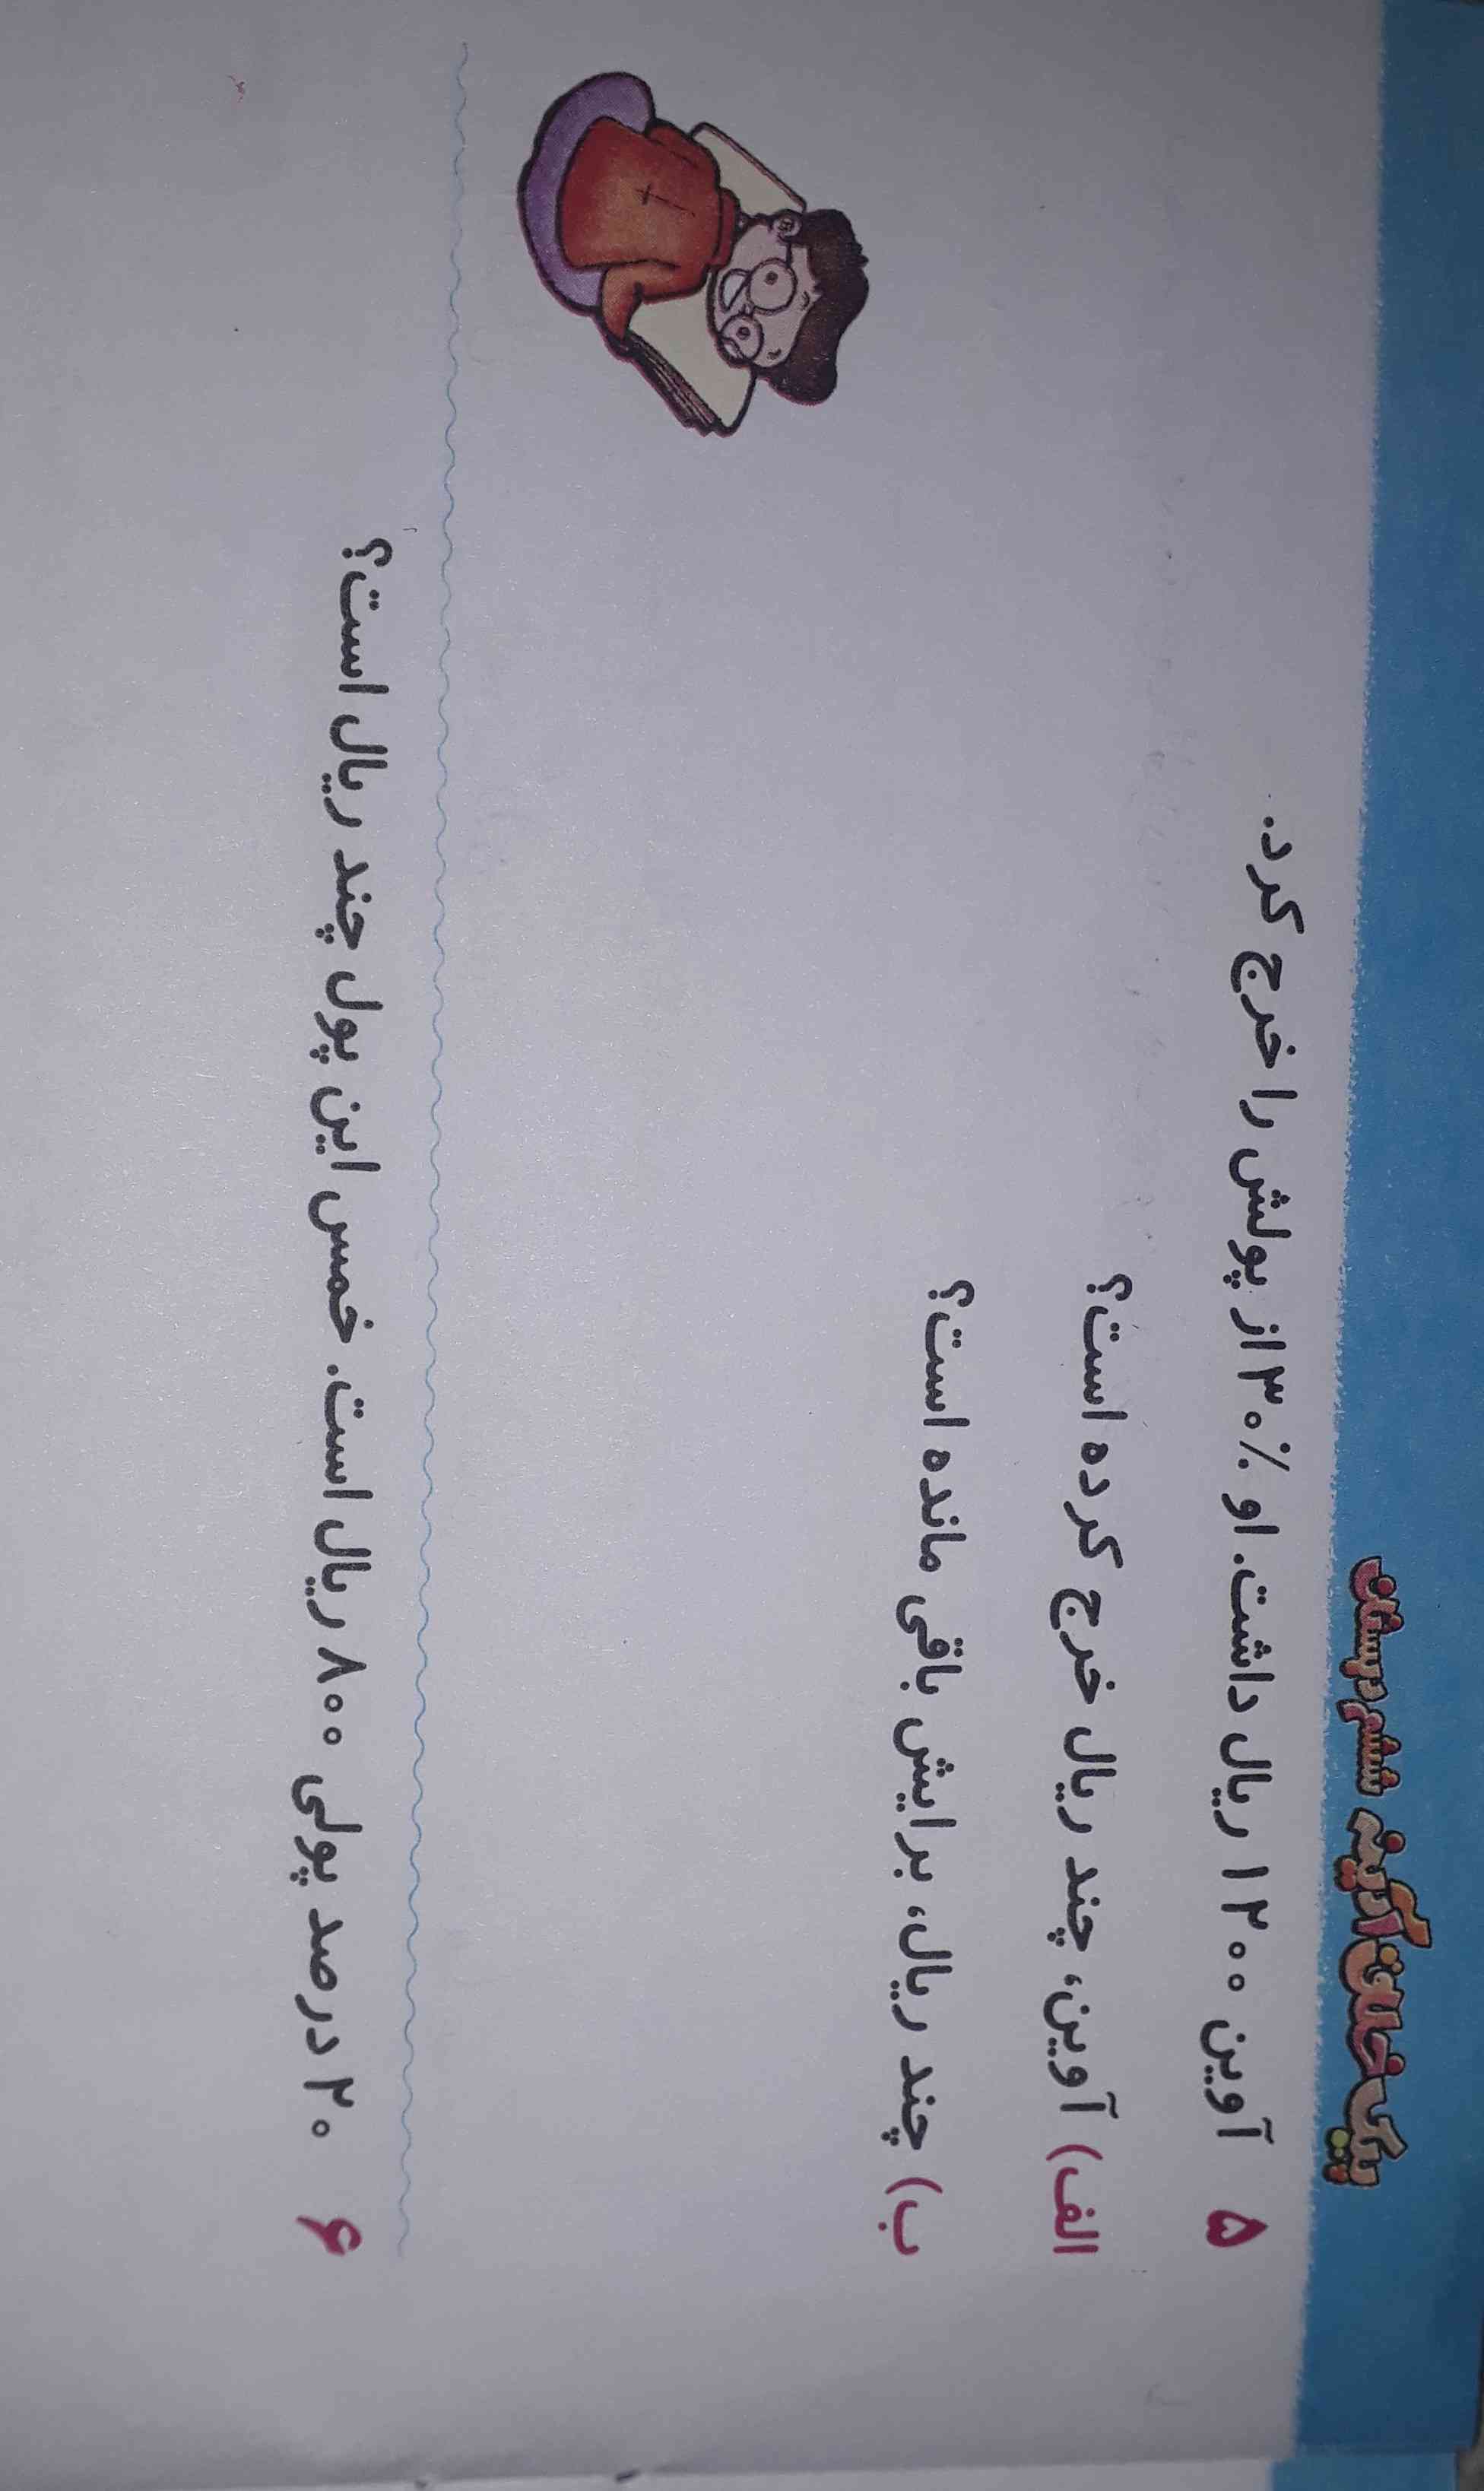 پیک خلاق آدینه ششم دبستان
۵ آوین ۱۲۰۰ ریال داشت. او ۳۰٪ از پولش را خرج کرد.
الف) آوین، چند ریال خرج کرده است؟
ب) چند ریال، برایش باقی مانده است؟
۶ ۲۰ درصد پولی ۸۰۰ ریال است. خمس این پول چند ریال است؟